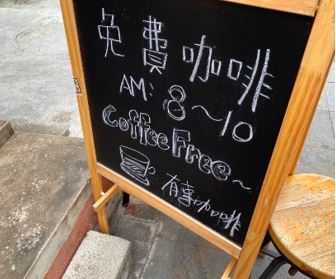 免費咖啡
AM:8~10
Coffee Free~
有喜咖啡